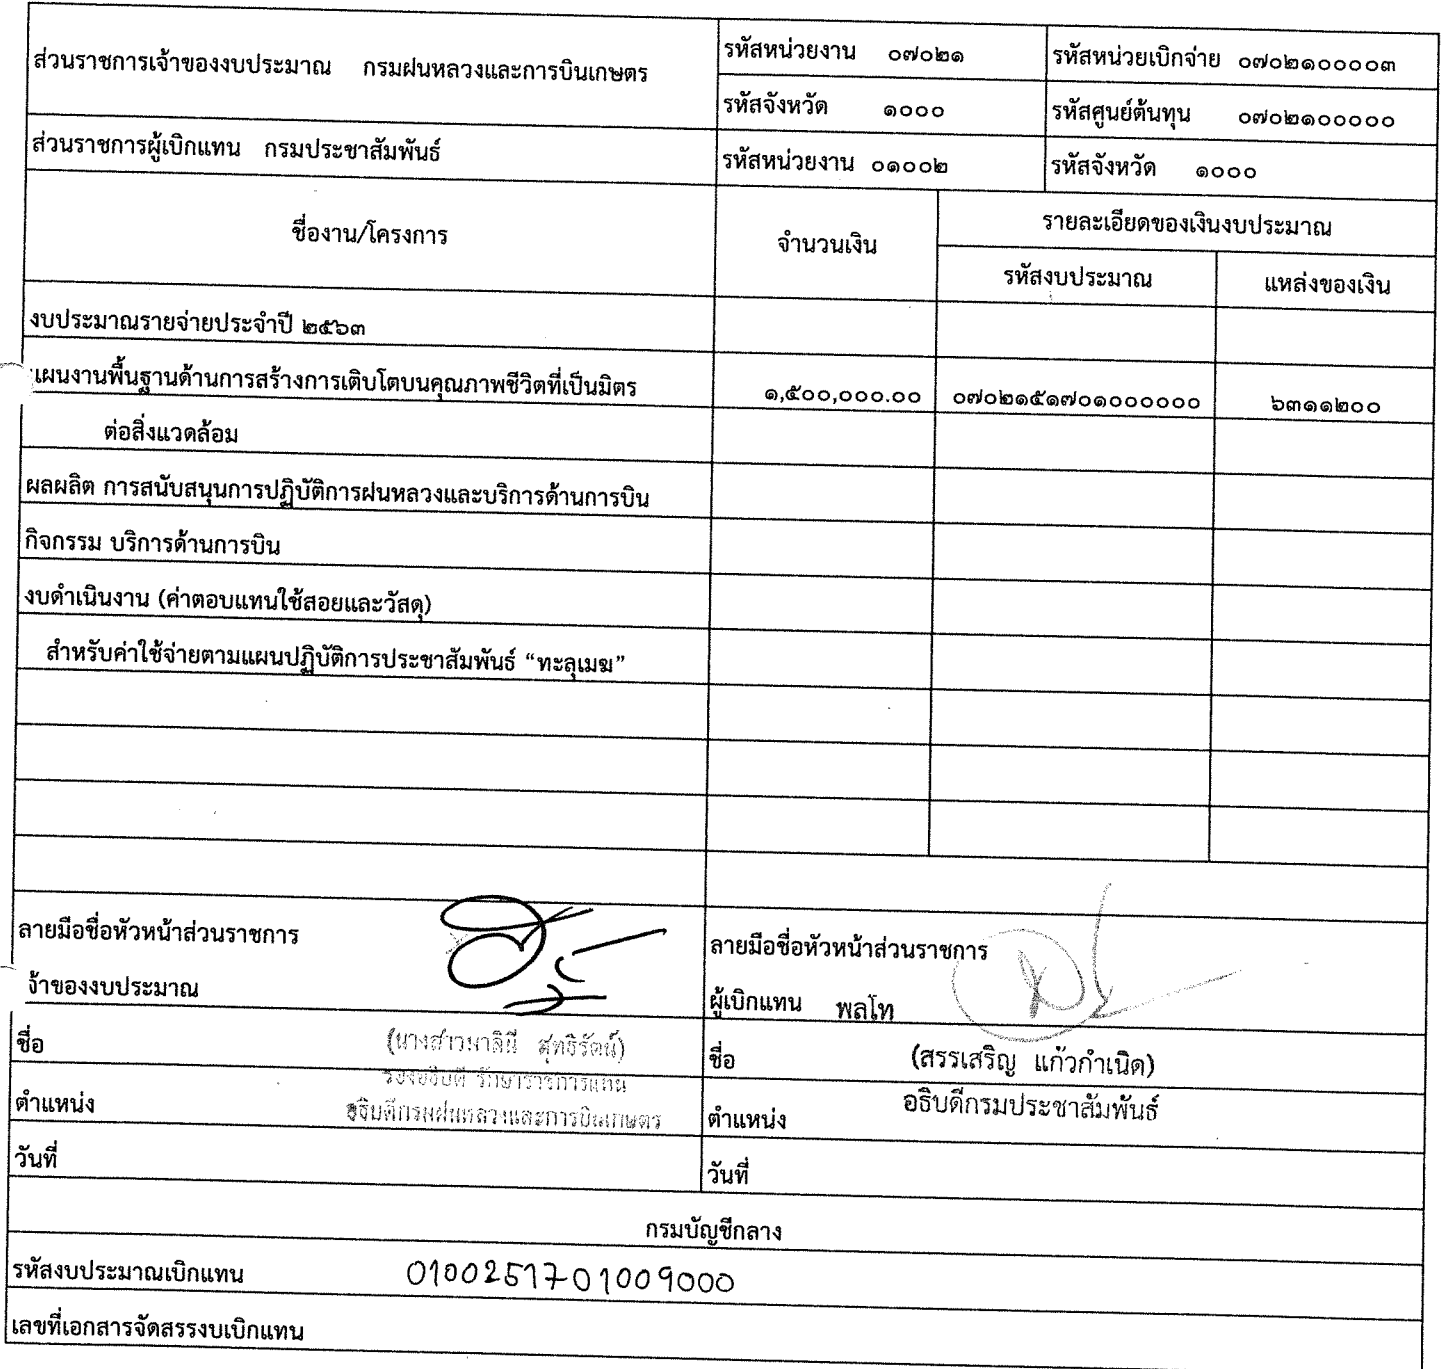 ส่วนราชการเจ้าของงบประมาณ กรมฝนหลวงและการบินเกษตร
รหัสหน่วยงาน ๐๗๐๒๑
รหัสหน่วยเบิกจ่าย ๐๗๐๒๑๐๐๐๐๓
รหัสจังหวัด ๑๐๐๐
รหัสศูนย์ต้นทุน ๐๗๐๒๑๐๐๐๐๐
ส่วนราชการผู้เบิกแทน กรมประชาสัมพันธ์
รหัสหน่วยงาน ๐๑๐๐๒
รหัสจังหวัด ๑๐๐๐
ชื่องาน/โครงการ
จำนวนเงิน
รายละเอียดของเงินงบประมาณ
รหัสงบประมาณ
แหล่งของเงิน
งบประมาณรายจ่ายประจำปี ๒๕๖๓
แผนงานพื้นฐานด้านการสร้างการเติบโตบนคุณภาพชีวิตที่เป็นมิตร
๑,๕๐๐,๐๐๐.๐๐
๐๗๐๒๑๕๑๗๐๑๐๐๐๐๐๐
๖๓๑๑๒๐๐
ต่อสิ่งแวดล้อม
ผลผลิต การสนับสนุนการปฏิบัติการฝนหลวงและบริการด้านการบิน
กิจกรรม บริการด้านการบิน
งบดำเนินงาน (ค่าตอบแทนใช้สอยและวัสดุ)
สำหรับค่าใช้จ่ายตามแผนปฏิบัติการประชาสัมพันธ์ “ทะลุเมฆ”
ลายมือชื่อหัวหน้าส่วนราชการ
จ้าของงบประมาณ
ลายมือชื่อหัวหน้าส่วนราชการ
ผู้เบิกแทน พลโท
ชื่อ (นางสาวนาลินี สุทธิรัตน์)
รองอธิบดี รักษาราชการแทน
ตำแหน่ง อธิบดีกรมฝนหลวงและการบินเกษตร
วันที่
ชื่อ (สรรเสริญ แก้วกำเนิด)
ตำแหน่ง อธิบดีกรมประชาสัมพันธ์
วันที่
กรมบัญชีกลาง
รหัสงบประมาณเบิกแทน 0100251701009000
เลขที่เอกสารจัดสรรงบเบิกแทน